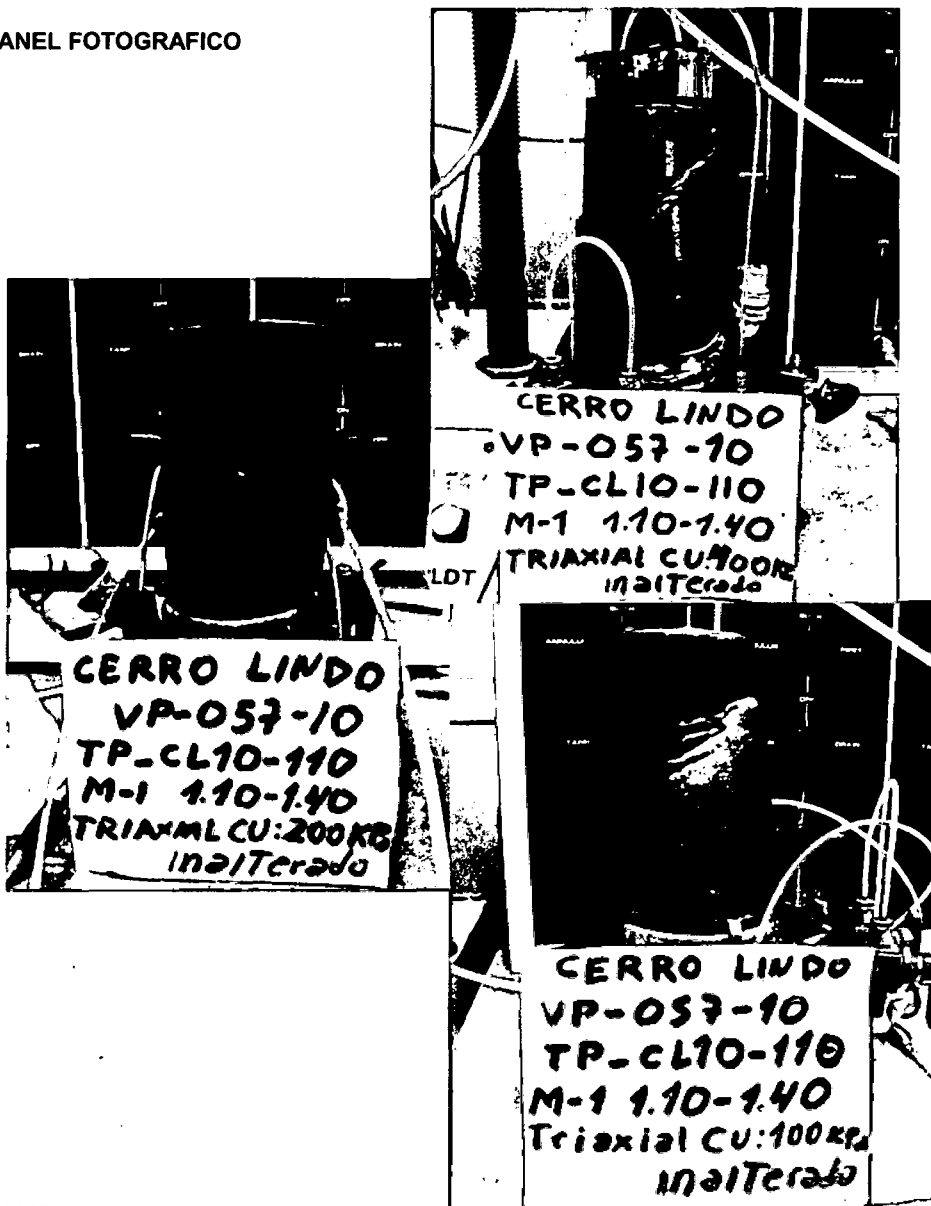 ANEL FOTOGRAFICO
CERRO LINDO
VP-057-10
TP-CL10-110
M-1 1.10-1.40
TRIAXIAL CU:400K
inalTerado
LDT
CERRO LINDO
VP-057-10
TP-CL10-110
M-1 1.10-1.40
TRIAXIAL CU:200KP
inalTerado
CERRO LINDO
VP-057-10
TP-CL10-110
M-1 1.10-1.40
Triaxial CU:100KPa
inalTerado